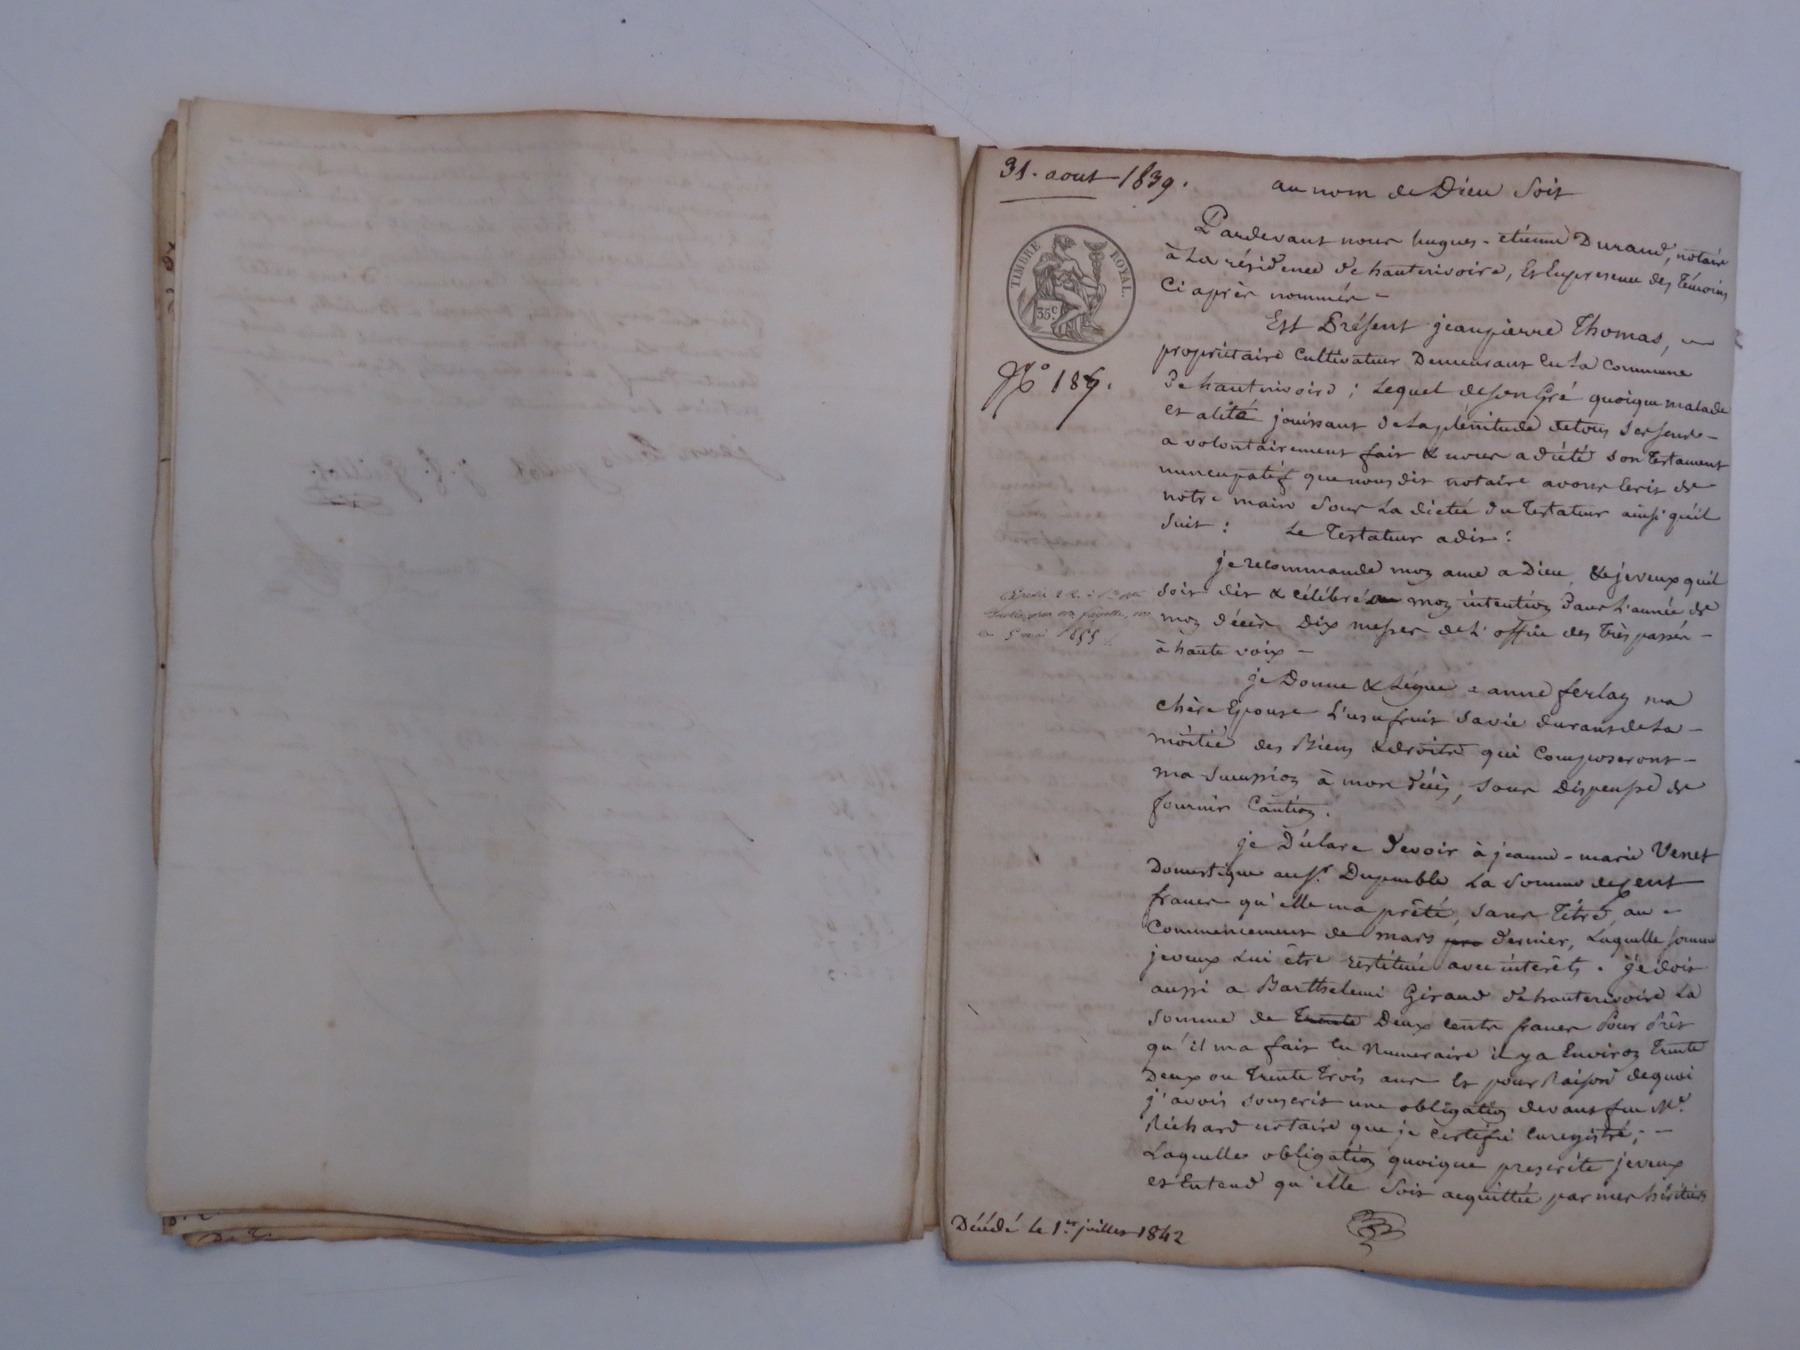 31. aout 1839.
au nom de Dieu soit
Pardevant nous hugues-étienne Durand, notaire
à La résidence de hauterivoire, Et En presence des Témoins
Ci après nommés -
TIMBRE ROYAL.
35c
Est Présent jeanpierre Thomas,
propriétaire Cultivateur Demeurant En La Commune
N° 187.
de hauterivoire ; Lequel de son Gré quoique malade
et alité jouissant de La plénitude de tous ses sens -
a volontairement fait & nous a dicté son Testament
nuncupatif que nous dit notaire avons Ecrit de
notre main sous La dictée du Testateur ainsi qu'il
suit : Le Testateur a dit :
je recommande mon ame a Dieu, & je veux qu'il
soit dit & célébré a mon intention dans L'année de
mon décès Dix messes de L'office des Trèspassés -
5 mai 1855
à haute voix -
je Donne & Légue a anne ferlay ma
chère Epouse L'usufruit sa vie durant de La -
moitié des Biens & droits qui Composeront -
ma succession à mon décès, sous Dispense de
fournir Caution.
je Déclare devoir à jeanne-marie Venet
Domestique au sr. Dupeuble La somme de Cent
francs qu'elle ma prêté, sans Titre, au -
Commencement de mars dernier, Laquelle somme
je veux Lui être restituée avec intérêts. je dois
aussi a Barthelemi Giraud de hauterivoire La
somme de Trente Deux Cents francs Pour Prêt
qu'il m'a fait En Numeraire il y a Environ Trente
Deux ou Trente Trois ans Et pour Raison de quoi
j'avois souscrit une obligation devant feu Me.
Richard notaire que je Certifie Enregistré ; -
Laquelle obligation quoique prescrite je veux
et Entend qu'elle soit acquittée par mes héritiers
Décédé le 1er juillet 1842